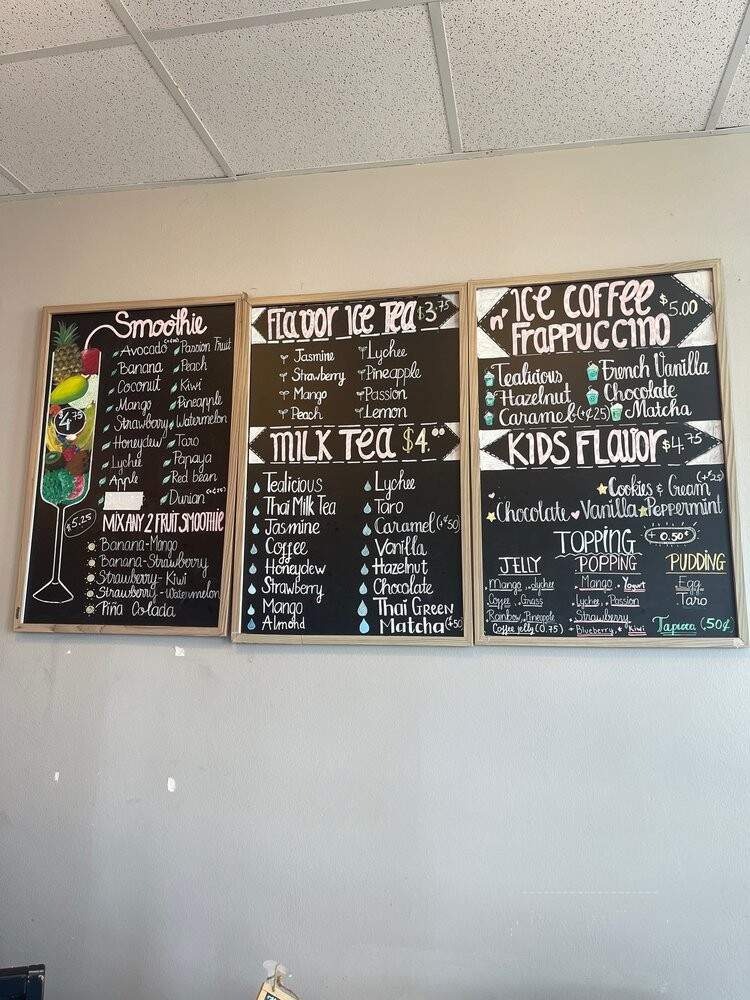 Smoothie
Avocado Passion Fruit
Banana Peach
Coconut Kiwi
Mango Pineapple
Strawberry Watermelon
Honeydew Taro
Lychee Papaya
Apple Red bean
Durian
$4.75
$5.25
MIX ANY 2 FRUIT SMOOTHIE
Banana-Mango
Banana-Strawberry
Strawberry-Kiwi
Strawberry-Watermelon
Piña Colada
Flavor Ice Tea $3.75
Jasmine Lychee
Strawberry Pineapple
Mango Passion
Peach Lemon
MILK TEA $4.00
Tealicious Lychee
Thai Milk Tea Taro
Jasmine Caramel (+.50)
Coffee Vanilla
Honeydew Hazelnut
Strawberry Chocolate
Mango THAI GREEN
Almond MATCHA (+.50)
ICE COFFEE $5.00
'n' FRAPPUCCINO
Tealicious French Vanilla
Hazelnut Chocolate
Caramel (+.25) Matcha
KIDS FLAVOR $4.75
Cookies & Cream (+.25)
Chocolate Vanilla Peppermint
TOPPING + 0.50¢
JELLY POPPING PUDDING
Mango, Lychee Mango, Yogurt Egg
Coffee, Grass Lychee, Passion Taro
Rainbow, Pineapple Strawberry
Coffee jelly (0.75) Blueberry, Kiwi Tapioca (.50¢)